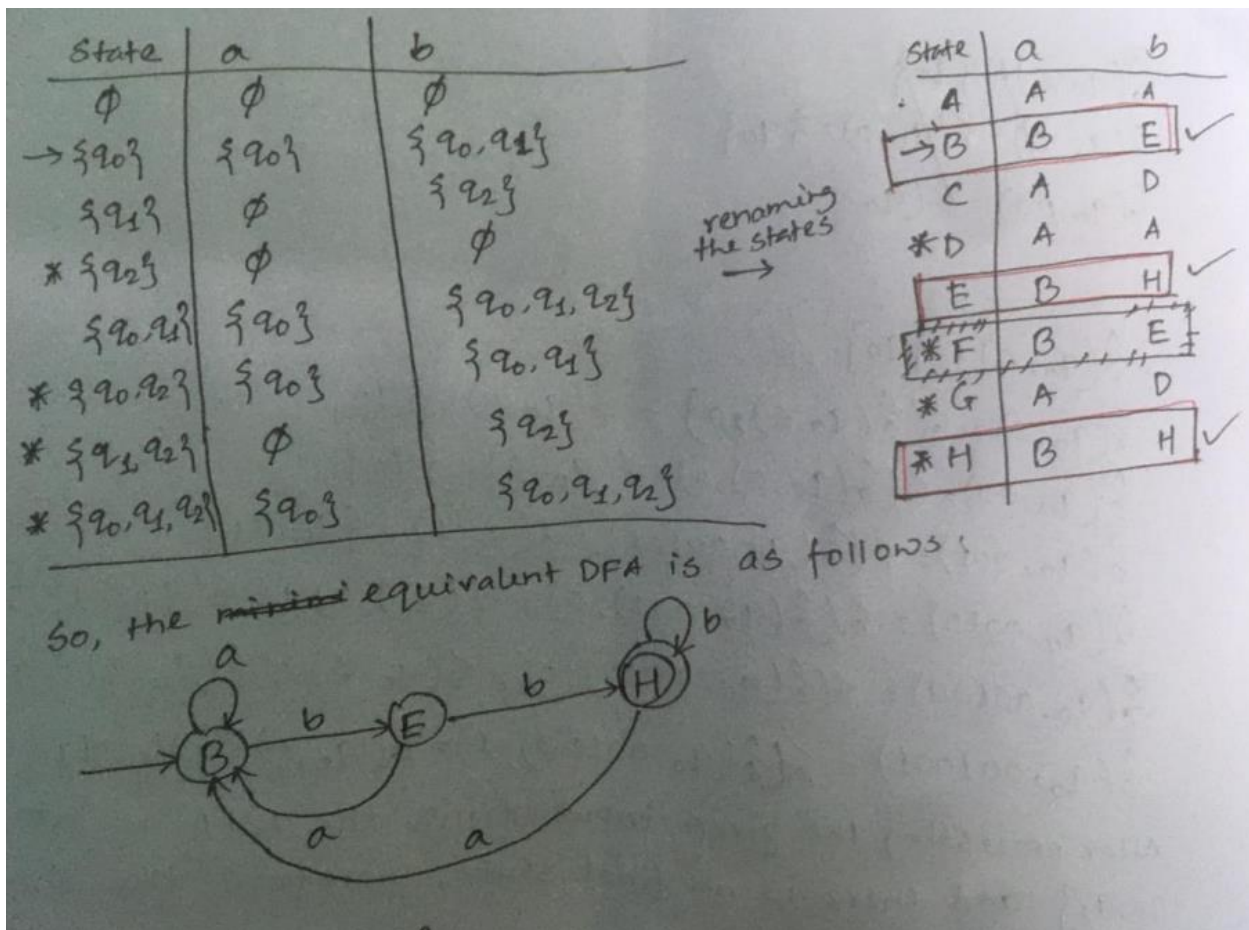 State a b
∅ ∅ ∅
→ {q0} {q0} {q0, q1}
{q1} ∅ {q2}
* {q2} ∅ ∅
{q0, q1} {q0} {q0, q1, q2}
* {q0, q2} {q0} {q0, q1}
* {q1, q2} ∅ {q2}
* {q0, q1, q2} {q0} {q0, q1, q2}
renaming
the states
→
State a b
A A A
→ B B E ✓
C A D
* D A A
E B H ✓
* F B E
* G A D
* H B H ✓
So, the equivalent DFA is as follows:
a
b
B
b
E
b
H
a
a